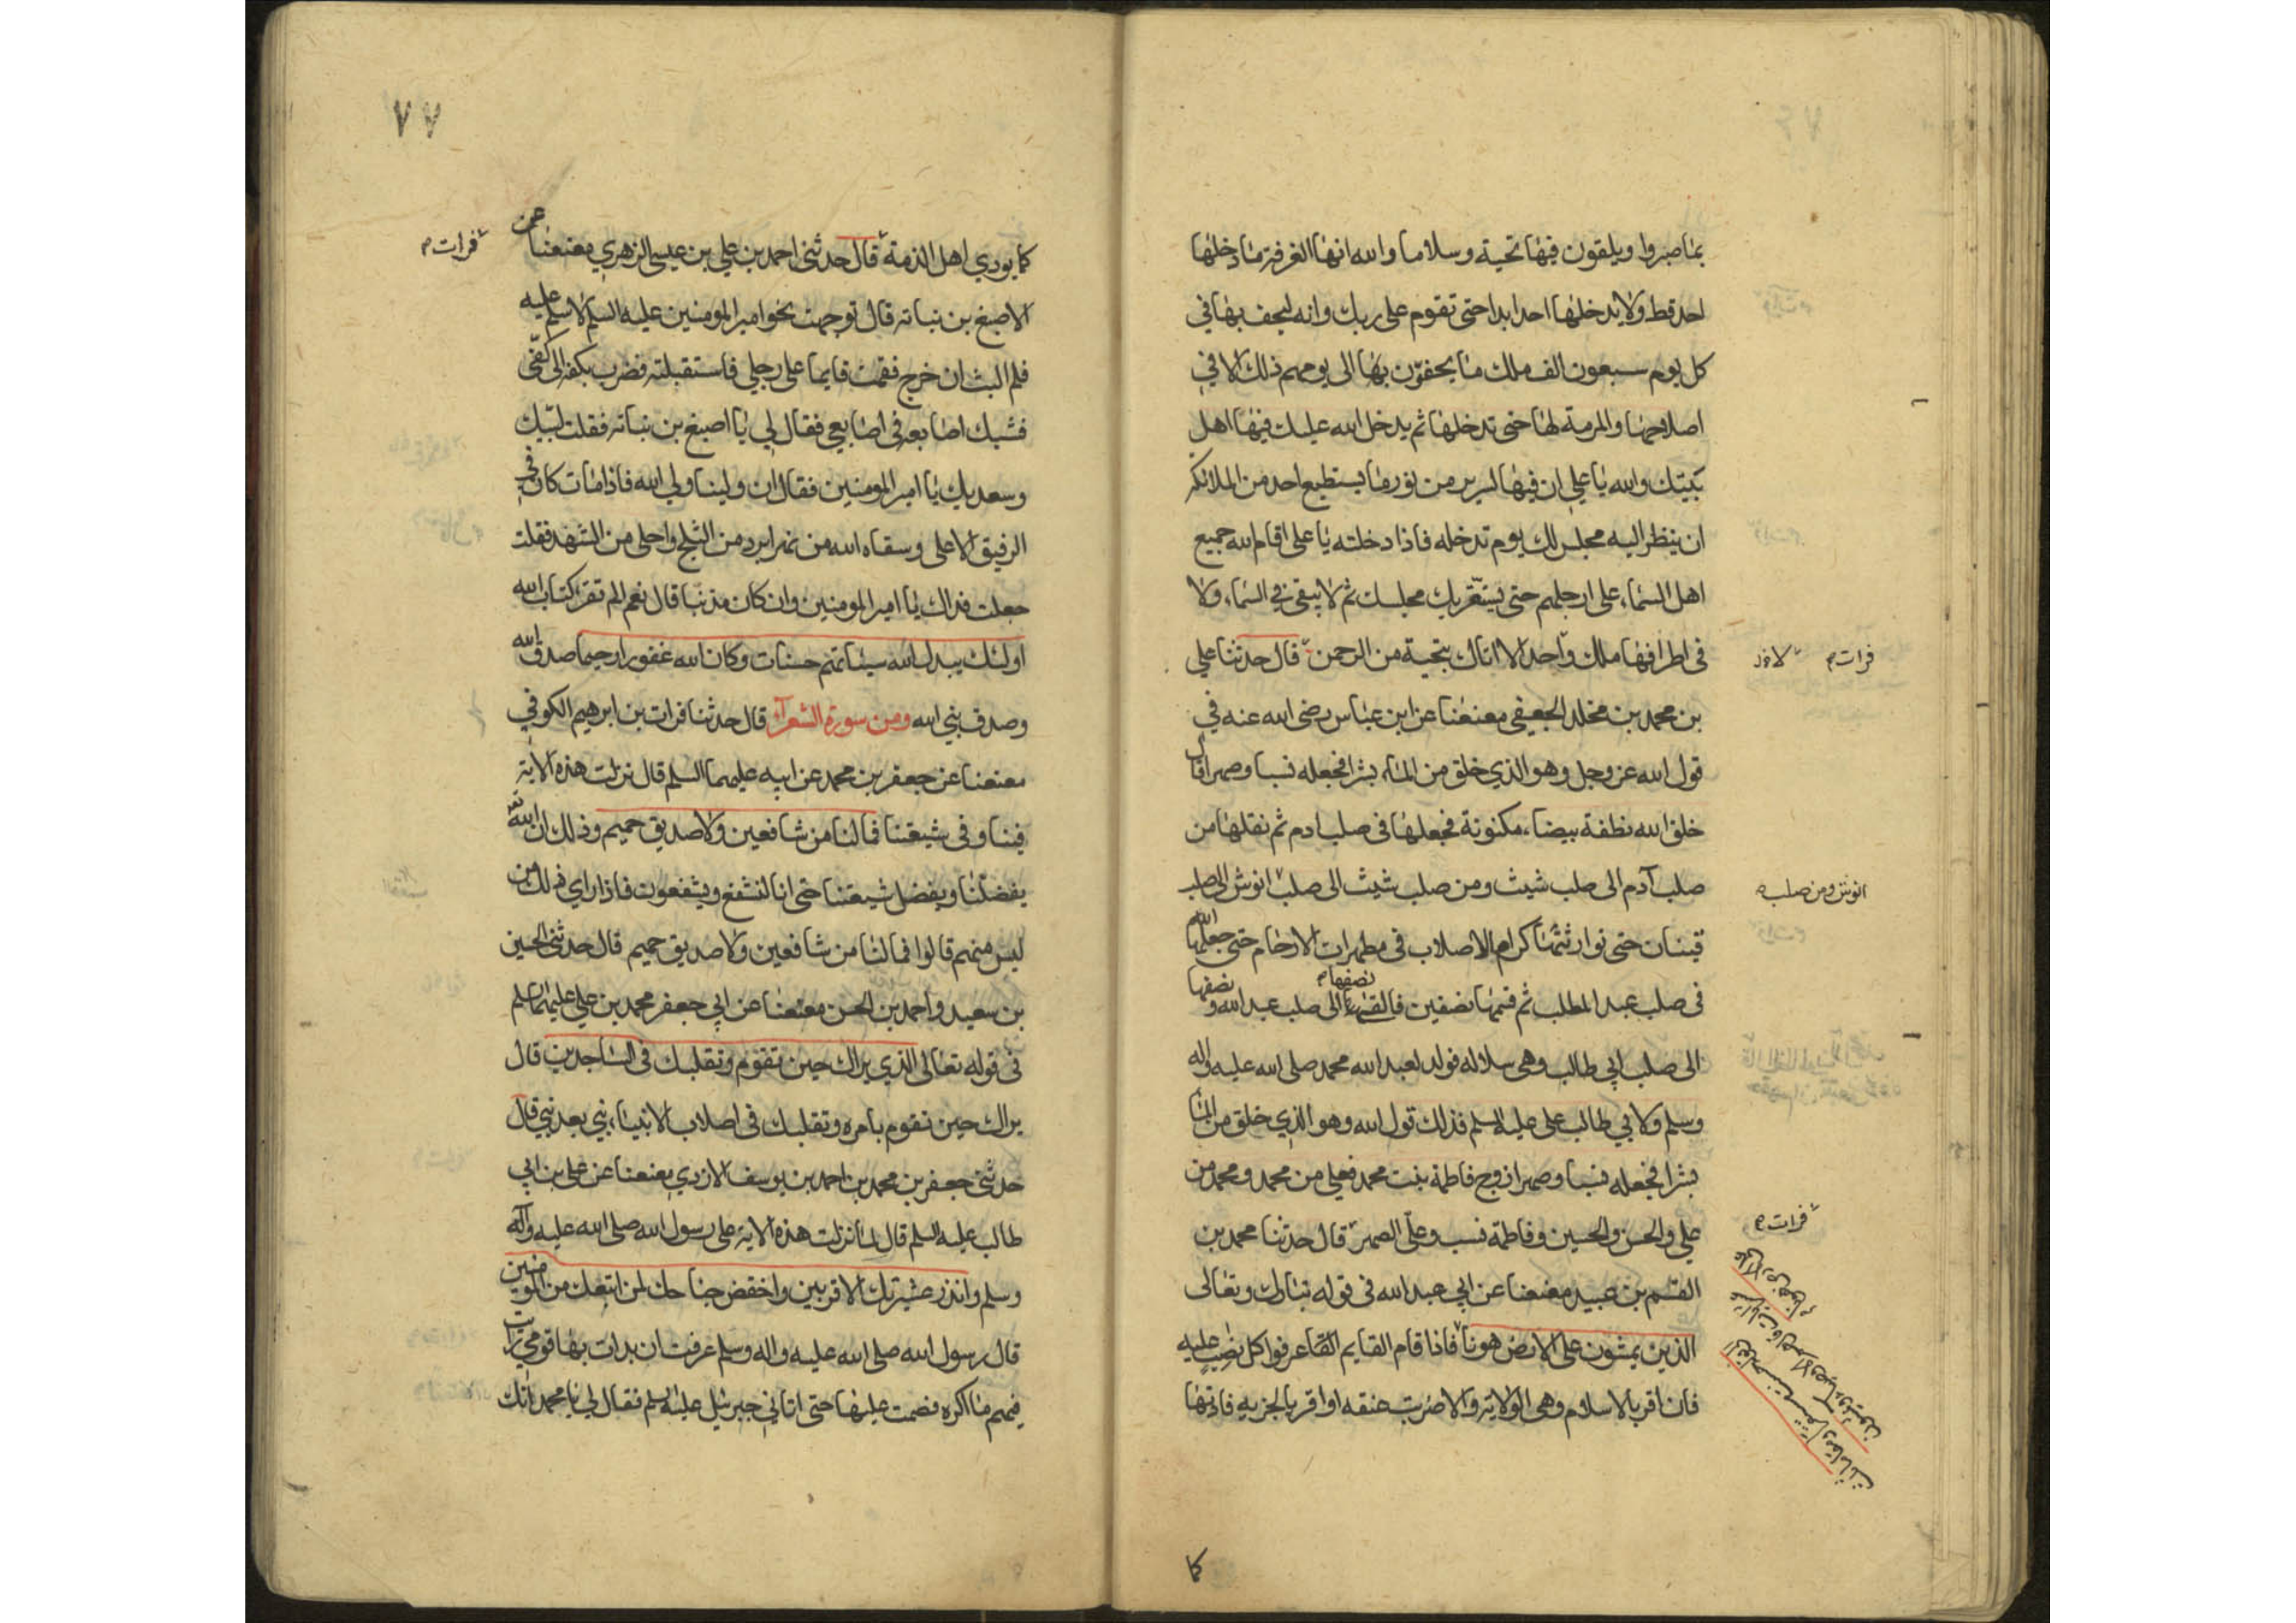 بما صبروا ويلقون فيها تحية وسلاما والله انها الغرفة ما دخلها
احد قط ولا يدخلها احد ابدا حتى تقوم على ربك وانه ليحف بها في
كل يوم سبعون الف ملك ما يحفون بها الى يومهم ذلك الا في
اصلاحها والمرمة لها حتى تدخلها ثم يدخل الله عليك فيها اهل
بيتك والله يا علي ان فيها لسرير من نور ما يستطيع احد من الملائكه
ان ينظر اليه مجلس لك يوم تدخله فاذا دخلته يا على اقام الله جميع
اهل السماء على ارجلهم حتى يستقر بك مجلسك ثم لا يبقى في السماء ولا
في اطرافها ملك واحد الا اتاك بتحية من الرحمن قال حدثنا علي
فرات
بن محمد بن مخلد الجعفي معنعنا عن ابن عباس رضى الله عنه في
قول الله عز وجل وهو الذي خلق من الماء بشرا فجعله نسبا وصهرا قال
خلق الله نطفة بيضاء مكنونة فجعلها في صلب ادم ثم نقلها من
صلب آدم الى صلب شيث ومن صلب شيث الى صلب انوش الى صلب
انوش ومن صلب
قينان حتى توارثتها كرام الاصلاب في مطهرات الارحام حتى جعلها الله
في صلب عبد المطلب ثم قسمها نصفين فالقى نصفها الى صلب عبد الله ونصفها
الى صلب ابي طالب وهي سلاله فولد لعبد الله محمد صلى الله عليه واله
وسلم ولابي طالب على عليه السلم فذلك قول الله وهو الذي خلق من الماء
بشرا فجعله نسبا وصهرا زوج فاطمة بنت محمد فعلي من محمد ومحمد من
علي والحسن والحسين وفاطمة نسب وعلي الصهر قال حدثنا محمد بن
فرات
القسم بن عبيد معنعنا عن ابي عبد الله في قوله تبارك وتعالى
الذين يمشون على الارض هونا فاذا قام القايم عرفوا كل نصب عليه
فان اقر بالاسلام وهى الولاية والا ضربت عنقه او اقر بالجزيه فاداها
كما
٧٧
كما يودي اهل الذمة قال حدثنى احمد بن علي بن عيسى الزهري معنعنا عن
فرات
الاصبغ بن نباته قال توجهت نحو امير المومنين عليه السلم لاسلم عليه
فلم البث ان خرج فقمت قايما على رجلي فاستقبلته فضرب بكفه الى كفى
فشبك اصابعه في اصابعي فقال لي يا اصبغ بن نباته فقلت لبيك
وسعديك يا امير المومنين فقال ان ولينا ولي الله فاذا مات كان في
الرفيق الاعلى وسقاه الله من نهر ابرد من الثلج واحلى من الشهد فقلت
جعلت فداك يا امير المومنين وان كان مذنبا قال نعم الم تقرا كتاب الله
اولئك يبدل الله سيئاتهم حسنات وكان الله غفورا رحيما صدق الله
وصدق نبي الله ومن سورة الشعراء قال حدثنا فرات بن ابرهيم الكوفي
معنعنا عن جعفر بن محمد عن ابيه عليهما السلم قال نزلت هذه الاية
فينا وفي شيعتنا فما لنا من شافعين ولا صديق حميم وذلك ان الله
يفضلنا ويفضل شيعتنا حتى انا لنشفع ويشفعون فاذا راى ذلك من
ليس منهم قالوا فما لنا من شافعين ولا صديق حميم قال حدثنى الحسين
بن سعيد واحمد بن الحسن معنعنا عن ابي جعفر محمد بن علي عليهما السلم
في قوله تعالى الذي يراك حين تقوم وتقلبك في الساجدين قال
يراك حين تقوم بامره وتقلبك في اصلاب الانبياء نبي بعد نبي قال
حدثنى جعفر بن محمد بن احمد بن يوسف الازدي معنعنا عن على بن ابي
طالب عليه السلم قال لما نزلت هذه الاية على رسول الله صلى الله عليه وآله
وسلم وانذر عشيرتك الاقربين واخفض جناحك لمن اتبعك من المومنين
قال رسول الله صلى الله عليه واله وسلم عرفت ان بدات بها قومي رايت
فيهم ما اكره فصمت عليها حتى اتاني جبرئيل عليه السلم فقال لي يا محمد انك